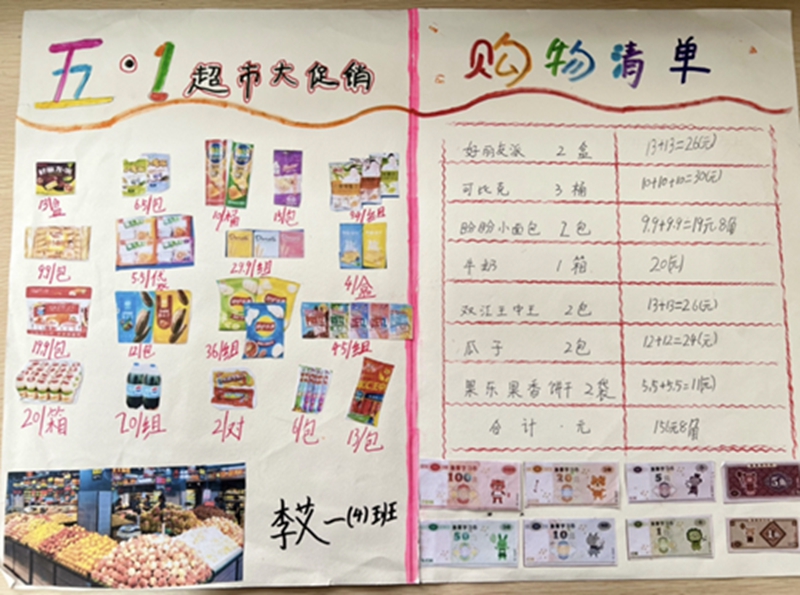 五·1 超市大促销
13/盒
6.5/包
10/桶
34/组
9.9/包
5.5/袋
29.9/组
4/盒
19.9/包
12/包
36/组
45/组
20/箱
20/组
2/对
13/包
李艾 一(4)班
购物清单
好丽友派 2盒 13+13=26(元)
可比克 3桶 10+10+10=30(元)
盼盼小面包 2包 9.9+9.9=19元8角
牛奶 1箱 20(元)
双汇王中王 2包 13+13=26(元)
瓜子 2包 12+12=24(元)
果乐果香饼干 2袋 5.5+5.5=11(元)
合计·元 156元8角
100
20
5
5角
50
10
1